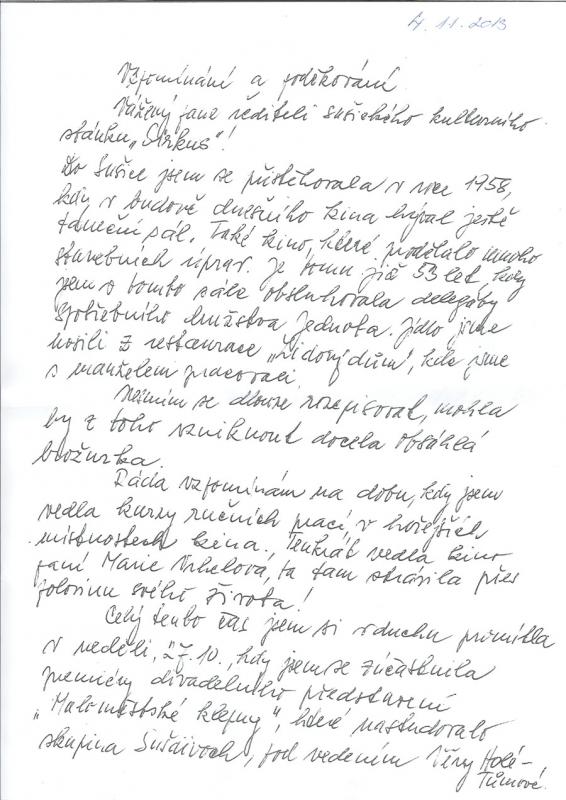 4. 11. 2013
Vzpomínání a poděkování
Vážený pane řediteli sušického kulturního
stánku „Sirkus"!
Do Sušice jsem se přistěhovala v roce 1958,
kdy v budově dnešního kina býval ještě
taneční sál. Také kino, které prodělalo mnoho
stavebních úprav. Je tomu již 53 let, kdy
jsem v tomto sále obsluhovala delegáty
Spotřebního družstva Jednota. Jídlo jsme
nosili z restaurace „Lidový dům", kde jsme
s manželem pracovali.
Nemíním se dlouze rozepisovat, mohla
by z toho vzniknout docela obsáhlá
brožurka.
Ráda vzpomínám na dobu, kdy jsem
vedla kurzy ručních prací, v hořejších
místnostech kina. Tenkrát vedla kino
paní Marie Vrhelová, ta tam strávila přes
polovinu svého života!
Celý tento čas jsem si v duchu promítla
v neděli, 27. 10., kdy jsem se zúčastnila
premiéry divadelního představení
„Maloměstské klepny", které nastudovala
skupina Sušáivoch, pod vedením Věry Holé-
Tůmové.